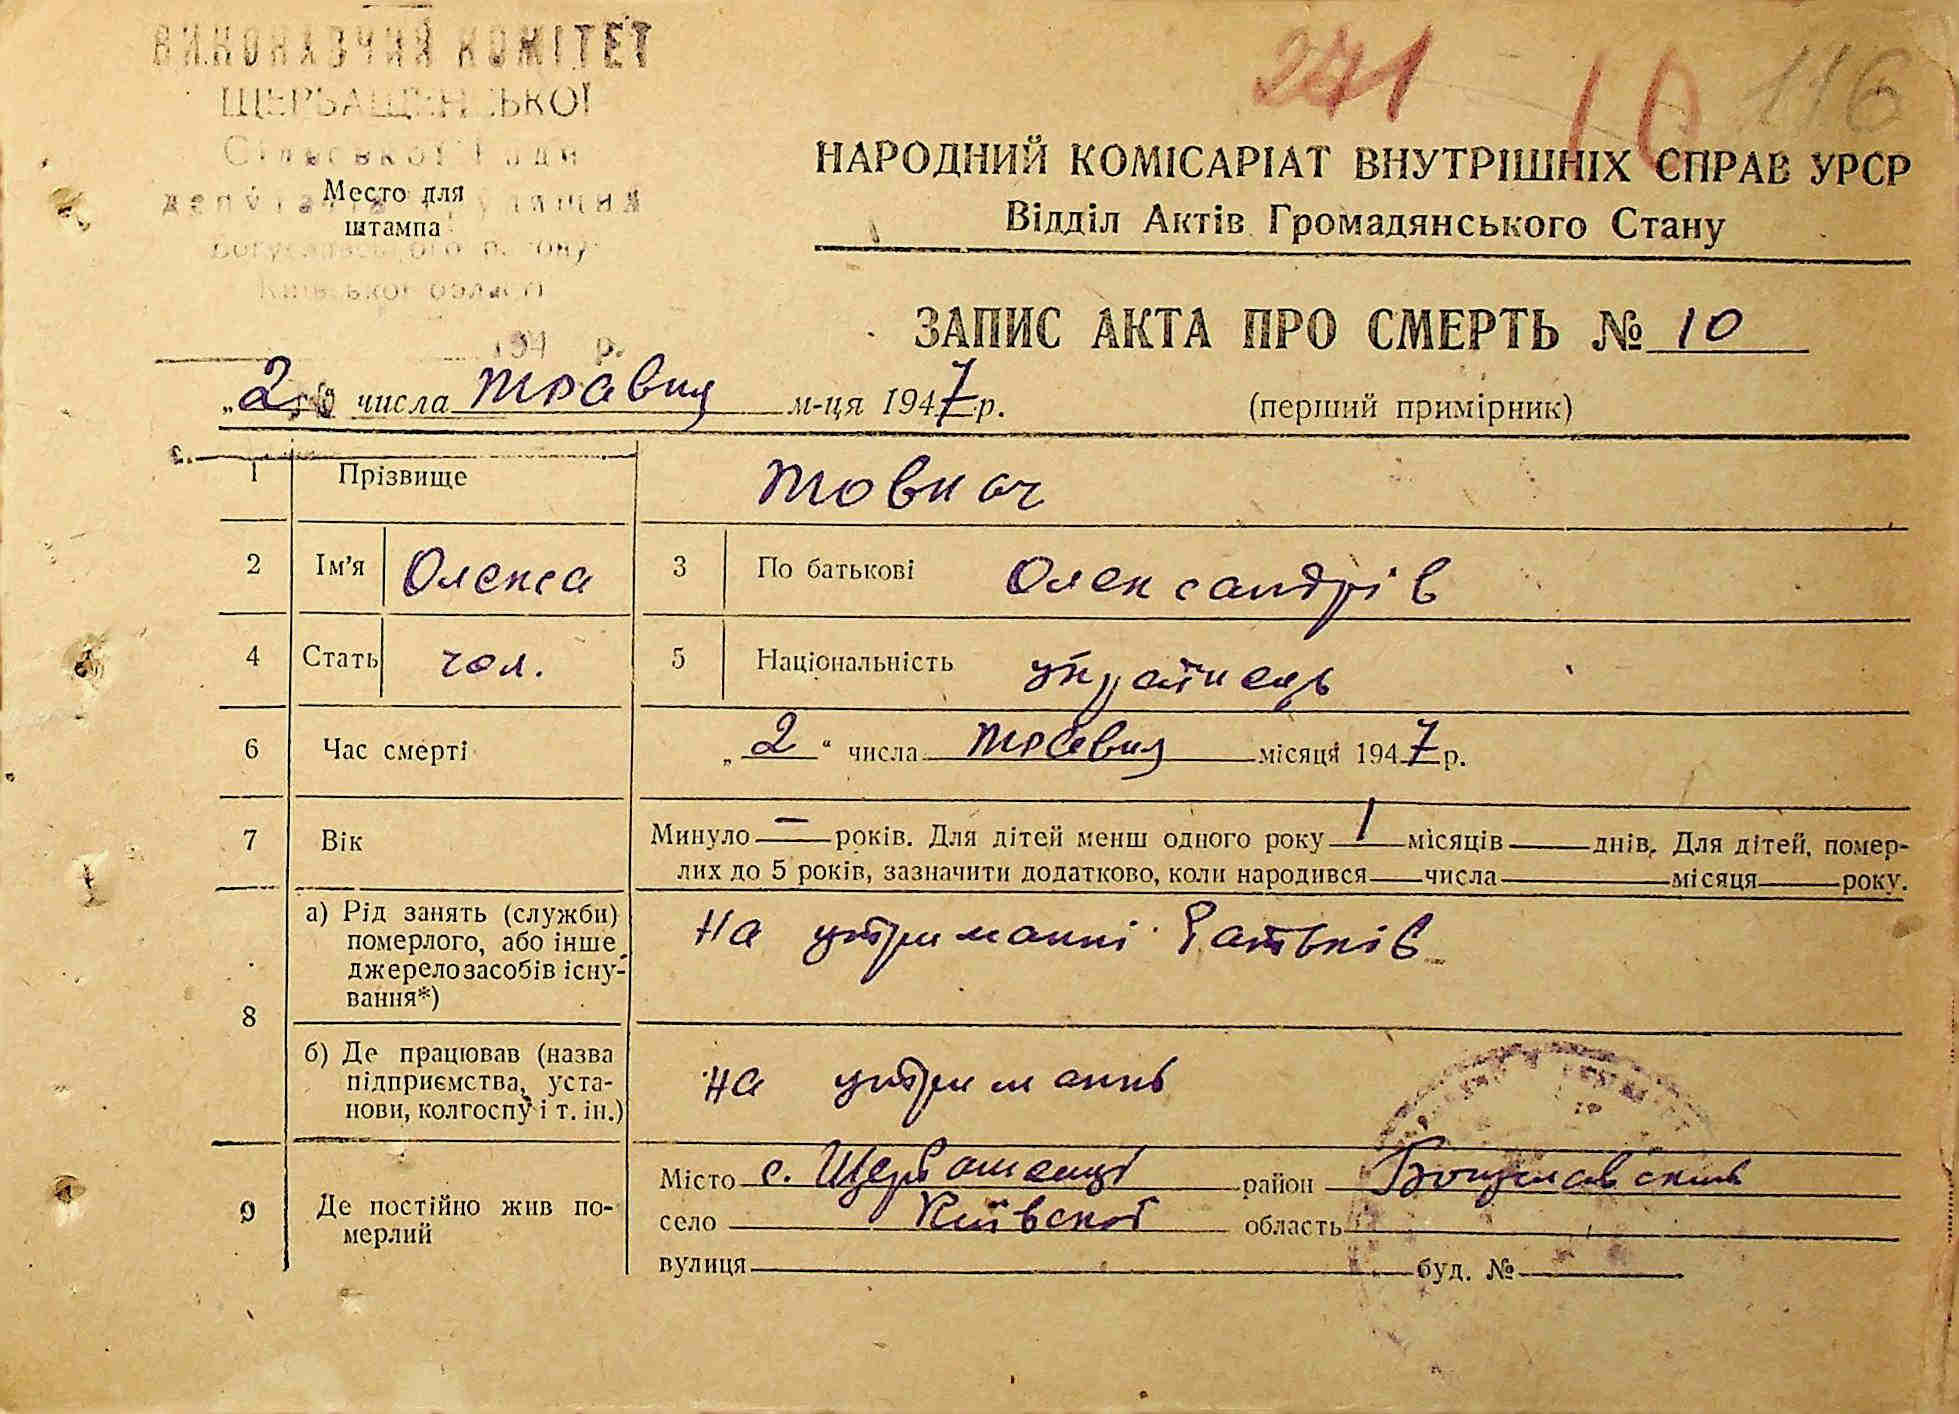 ВИКОНАВЧИЙ КОМІТЕТ
ЩЕРБАШЕНСЬКОЇ
Сільської Ради
депутатів трудящих
Богуславського району
Київської області
194 р.
Место для
штампа
271 10 116
НАРОДНИЙ КОМІСАРІАТ ВНУТРІШНІХ СПРАВ УРСР
Відділ Актів Громадянського Стану
ЗАПИС АКТА ПРО СМЕРТЬ № 10
„2го числа травня м-ця 1947 р. (перший примірник)
1 Прізвище Товкач
2 Ім'я Олекса 3 По батькові Олександрів
4 Стать чол. 5 Національність українець
6 Час смерті „2“ числа травня місяця 1947 р.
7 Вік Минуло — років. Для дітей менш одного року 1 місяців днів. Для дітей, помер-
лих до 5 років, зазначити додатково, коли народився числа місяця року.
8 а) Рід занять (служби)
померлого, або інше
джерело засобів існу-
вання*)
На утриманні батьків
б) Де працював (назва
підприємства, уста-
нови, колгоспу і т. ін.)
на утриманнь
9 Де постійно жив по-
мерлий
Місто с. Щербашенці район Богуславський
село Київської область
вулиця буд. №